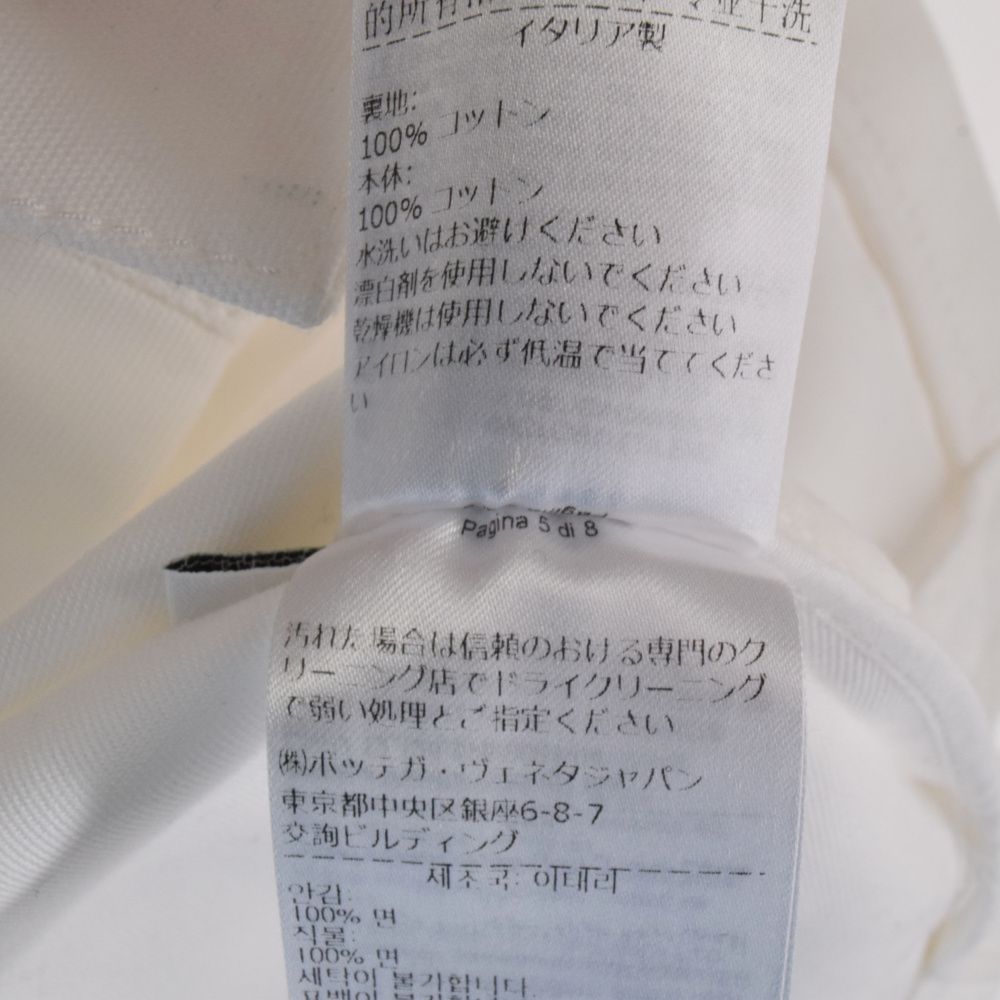 的所有
干洗
イタリア製
裏地:
100% コットン
本体:
100% コットン
水洗いはお避けください
漂白剤を使用しないでください
乾燥機は使用しないでください
アイロンは必ず低温で当ててくださ
い
Pagina 5 di 8
汚れた場合は信頼のおける専門のク
リーニング店でドライクリーニング
で弱い処理とご指定ください
(株)ボッテガ・ヴェネタジャパン
東京都中央区銀座6-8-7
交詢ビルディング
제조국: 이태리
안감:
100% 면
직물:
100% 면
세탁이 불가합니다.
표백이 불가합니다.